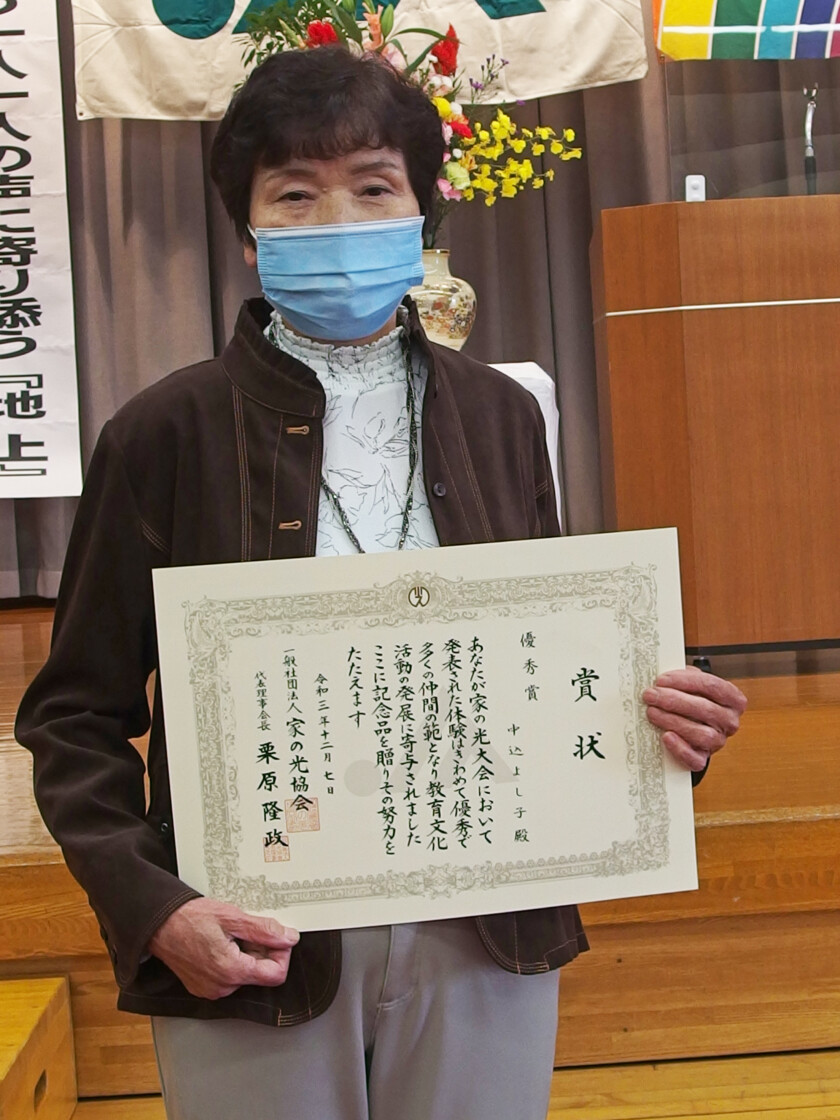 一人一人の声に寄り添う『地上』
賞状
優秀賞
中込よし子殿
あなたが家の光大会において
発表された体験はきわめて優秀で
多くの仲間の範となり教育文化
活動の発展に寄与されました
ここに記念品を贈りその努力を
たたえます
令和三年十二月七日
一般社団法人家の光協会
代表理事会長 栗原隆政